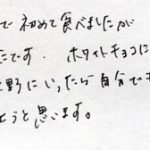 で初めて食べましたが
たです. ホワイトチョコに
野にいったら自分でも
ようと思います。